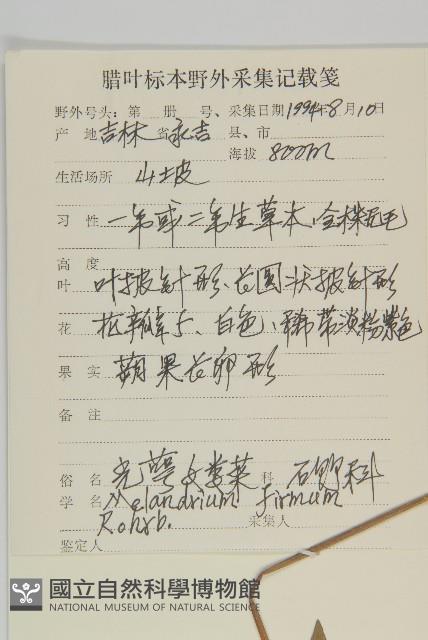 腊叶标本野外采集记载笺
野外号头：第 册 号、采集日期1994年8月10日
产 地 吉林 省 永吉 县、市
海拔 800m
生活场所 山坡
习 性 一年或二年生草本、全株无毛
高 度
叶 叶披针形、长圆状披针形
花 花瓣5、白色、稀带淡粉紫色
果 实 蒴果长卵形
备 注
俗 名 光萼女娄菜 科 石竹科
学 名 Melandrium firmum
Rohrb. 采集人
鉴定人
國立自然科學博物館
NATIONAL MUSEUM OF NATURAL SCIENCE